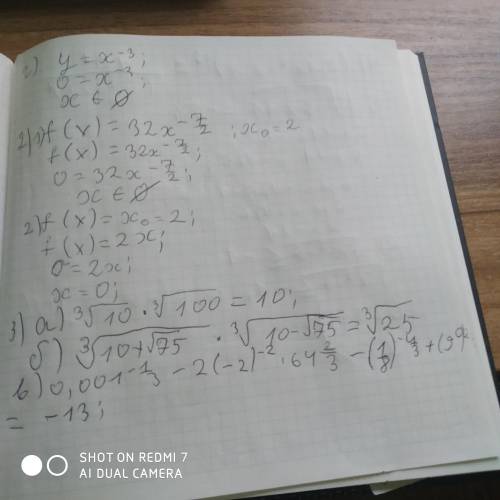 2) y = x⁻³;
0 = x⁻³;
x ∈ ∅
2)1) f(x) = 32x^-7/2 ; x₀ = 2
f(x) = 32x^-7/2;
0 = 32x^-7/2;
x ∈ ∅
2) f(x) = x₀ = 2;
f(x) = 2x;
0 = 2x;
x = 0;
3) а) ∛10 · ∛100 = 10;
б) ∛(10+√75) · ∛(10-√75) = ∛25
в) 0,001^-1/3 - 2(-2)⁻² · 64^2/3 - (1/8)^-4/3 + (9
= -13;
SHOT ON REDMI 7
AI DUAL CAMERA